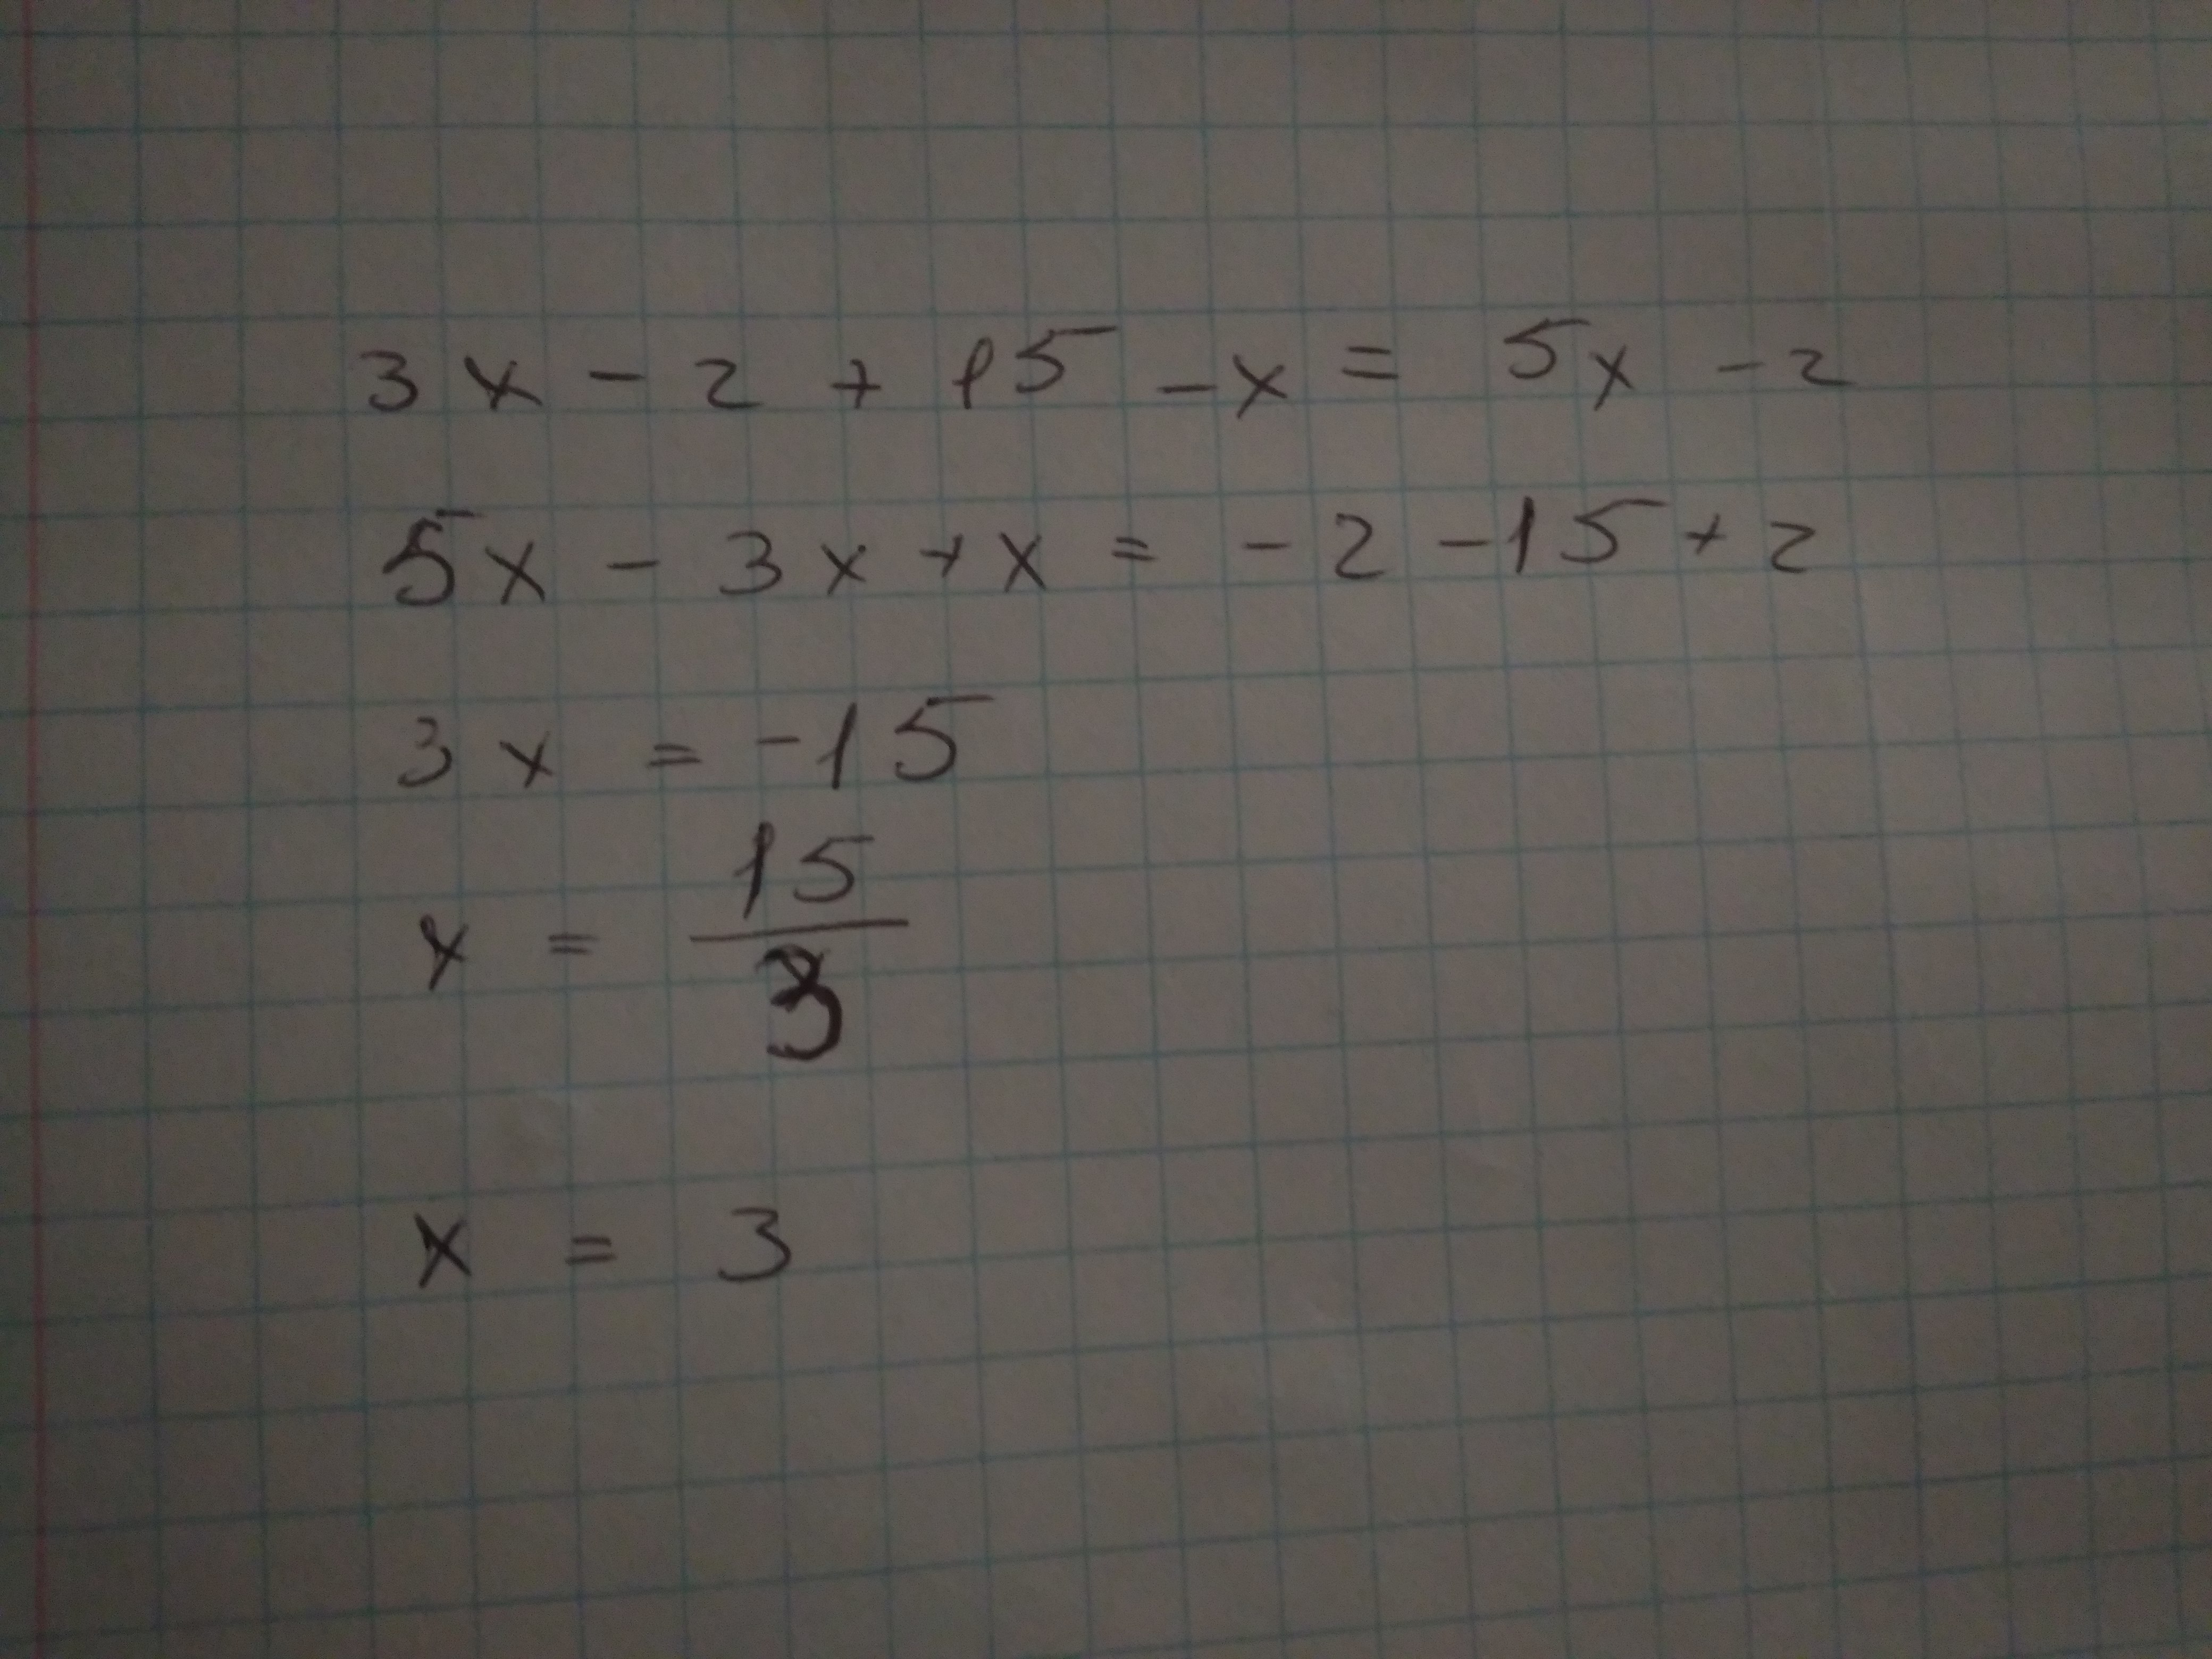 3x - 2 + 15 - x = 5x - 2
5x - 3x + x = - 2 - 15 + 2
3x = -15
x = 15/3
x = 3